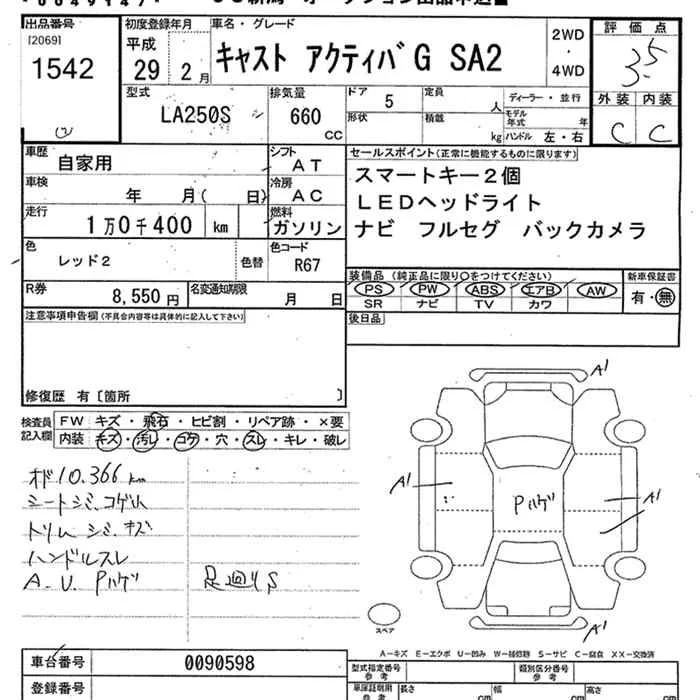 出品番号
[2069]
1542
初度登録年月
平成
29 2月
車名・グレード
キャスト アクティバG SA2
2WD
・
4WD
評価点
3.5
外装 内装
C C
型式
LA250S
排気量
660
CC
ドア 5
定員 人
形状
積載 kg
ディーラー・並行
モデル年式 年
ハンドル 左・右
車歴
自家用
シフト
AT
車検
年 月( 日)
冷房
AC
走行
1万0千400 km
燃料
ガソリン
セールスポイント(正常に機能するものに限ります)
スマートキー2個
LEDヘッドライト
ナビ フルセグ バックカメラ
色
レッド2
色替
色コード
R67
R券
8,550円
名変通知期限
月 日
装備品 (純正品に限り○をつけてください)
PS PW ABS エアB AW
SR ナビ TV カワ
新車保証書
有・無
後日品
注意事項申告欄(不具合内容等は具体的に記入して下さい)
修復歴 有〔箇所 〕
検査員
記入欄
FW キズ・飛石・ヒビ割・リペア跡・×要
内装 キズ・汚レ・コゲ・穴・スレ・キレ・破レ
オド10.366km
シートシミ、コゲ小
トリムシミ、キズ
ハンドルスレ
A.U.Pハゲ
足廻りS
A1
A1
Pハゲ
A1
A1
スペア
A-キズ E-エクボ U-凹み W-補修跡 S-サビ C-腐食 XX-交換済
車台番号
0090598
登録番号
型式指定番号
参考
類別区分番号
参考
車庫証明用
参考
長さ cm
幅 cm
高さ cm